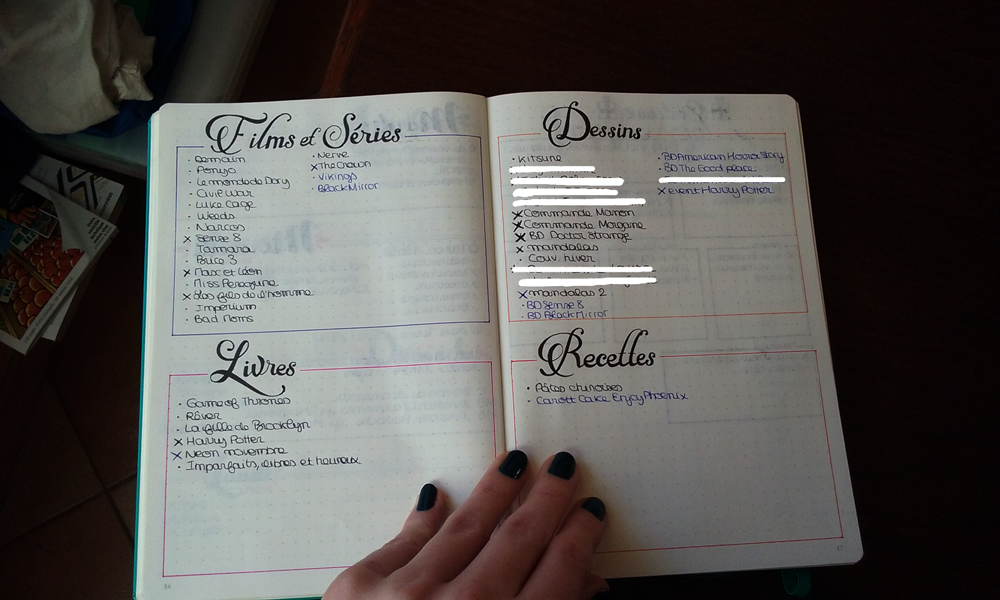 Films et Séries
• Demain
• Ponyo
• Le monde de Dory
• Civil War
• Luke Cage
• Weeds
• Narcos
x Sense 8
• Tamara
• Brice 3
x Max et Léon
• Miss Peregrine
x Les fils de l'homme
• Imperium
• Bad Moms
• Nerve
x The Crown
• Vikings
• Black Mirror
Livres
• Game of Thrones
• Rêver
• La fille de Brooklyn
x Harry Potter
x Neon novembre
• Imparfaits, libres et heureux
16
Dessins
• Kitsune
x Commande Manon
x Commande Morgane
x BD Doctor Strange
x mandalas
• Couv. hiver
x mandalas 2
• BD Sense 8
• BD Black Mirror
• BD American Horror Story
• BD The Good place
x event Harry Potter
Recettes
• Pâtes chinoises
• Carott Cake EnjoyPhoenix
17